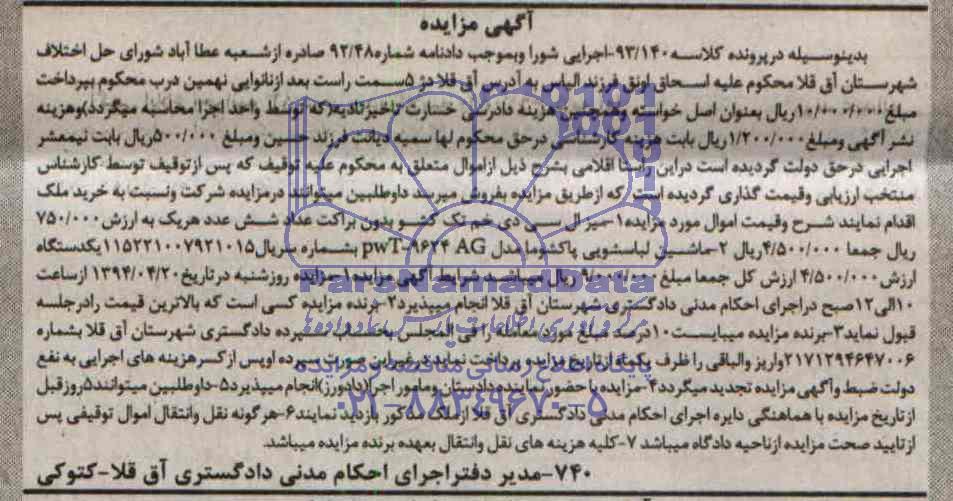 آگهی مزایده
بدینوسیله درپرونده کلاسه ۹۳/۱۴۰-اجرایی شورا وبموجب دادنامه شماره۹۲/۴۸ صادره ازشعبه عطا آباد شورای حل اختلاف
شهرستان آق قلا محکوم علیه اسحاق اونق فرزند الیاس به آدرس آق قلادژ ۵سمت راست بعد ازنانوایی نهمین درب محکوم بپرداخت
مبلغ۱۰/۰۰۰/۰۰۰ریال بعنوان اصل خواسته وهمچنین هزینه دادرسی خسارت تاخیرتادیه(که توسط واحد اجرا محاسبه میگردد)وهزینه
نشر آگهی ومبلغ۱/۲۰۰/۰۰۰ریال بابت هزینه کارشناسی درحق محکوم لها سمیه دیانت فرزند حسین ومبلغ ۵۰۰/۰۰۰ریال بابت نیمعشر
اجرایی درحق دولت گردیده است دراین راستا اقلامی بشرح ذیل ازاموال متعلق به محکوم علیه توقیف که پس ازتوقیف توسط کارشناس
منتخب ارزیابی وقیمت گذاری گردیده است که ازطریق مزایده بفروش میرسد داوطلبین میتوانند درمزایده شرکت ونسبت به خرید ملک
اقدام نمایند شرح وقیمت اموال مورد مزایده۱-میز ال سی دی خم تک کشو بدون براکت تعداد شش عدد هریک به ارزش ۷۵۰/۰۰۰
ریال جمعا ۴/۵۰۰/۰۰۰ریال ۲-ماشین لباسشویی پاکشوما مدل pwT-۹۶۲۴ AG بشماره سریال۱۱۵۲۲۱۰۰۷۹۲۱۰۱۵یکدستگاه
ارزش ۴/۵۰۰/۰۰۰ ارزش کل جمعا مبلغ ۹/۰۰۰/۰۰۰ ریال میباشد شرایط آگهی مزایده۱-مزایده روزشنبه درتاریخ۱۳۹۴/۰۴/۲۰ ازساعت
۱۰الی۱۲صبح دراجرای احکام مدنی دادگستری شهرستان آق قلا انجام میپذیرد۲-برنده مزایده کسی است که بالاترین قیمت رادرجلسه
قبول نماید۳-برنده مزایده میبایست۱۰درصد مبلغ مورد معامله را فی المجلس بحساب سپرده دادگستری شهرستان آق قلا بشماره
۲۱۷۱۲۹۴۶۴۷۰۰۶واریز والباقی را ظرف یکماه ازتاریخ مزایده پرداخت نماید درغیراین صورت سپرده اوپس ازکسرهزینه های اجرایی به نفع
دولت ضبط وآگهی مزایده تجدید میگردد۴-مزایده باحضور نماینده دادستان ومامور اجرا(دادورز)انجام میپذیرد۵-داوطلبین میتوانند۵روزقبل
ازتاریخ مزایده با هماهنگی دایره اجرای احکام مدنی دادگستری آق قلا ازملک مذکور بازدید نمایند۶-هرگونه نقل وانتقال اموال توقیفی پس
ازتایید صحت مزایده ازناحیه دادگاه میباشد ۷-کلیه هزینه های نقل وانتقال بعهده برنده مزایده میباشد.
۷۴۰-مدیر دفتراجرای احکام مدنی دادگستری آق قلا-کتوکی
ParsNamadData
پایگاه اطلاع رسانی مناقصه و مزایده
۰۲۱-۸۸۳۴۹۶۷۰-۵